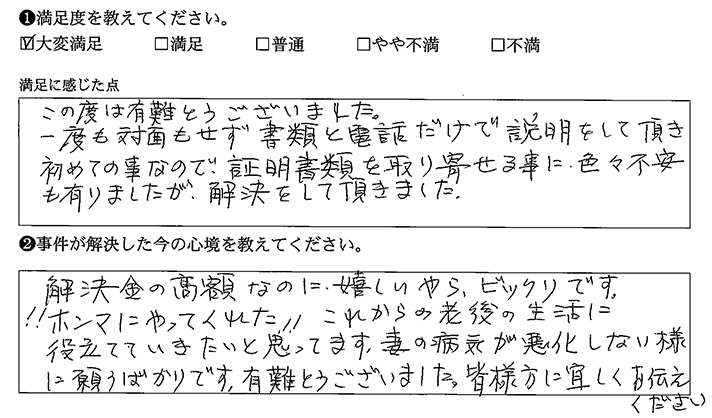 ❶満足度を教えてください。
☑大変満足 □満足 □普通 □やや不満 □不満
満足に感じた点
この度は有難とうございました。
一度も対面もせず書類と電話だけで説明をして頂き
初めての事なので、証明書類を取り寄せる事に、色々不安
も有りましたが、解決をして頂きました。
❷事件が解決した今の心境を教えてください。
解決金の高額なのに、嬉しいやら、ビックリです。
!!ホンマにやってくれた!! これからの老後の生活に
役立てていきたいと思ってます。妻の病気が悪化しない様
に願うばかりです。有難とうございました。皆様方に宜しくお伝え
ください